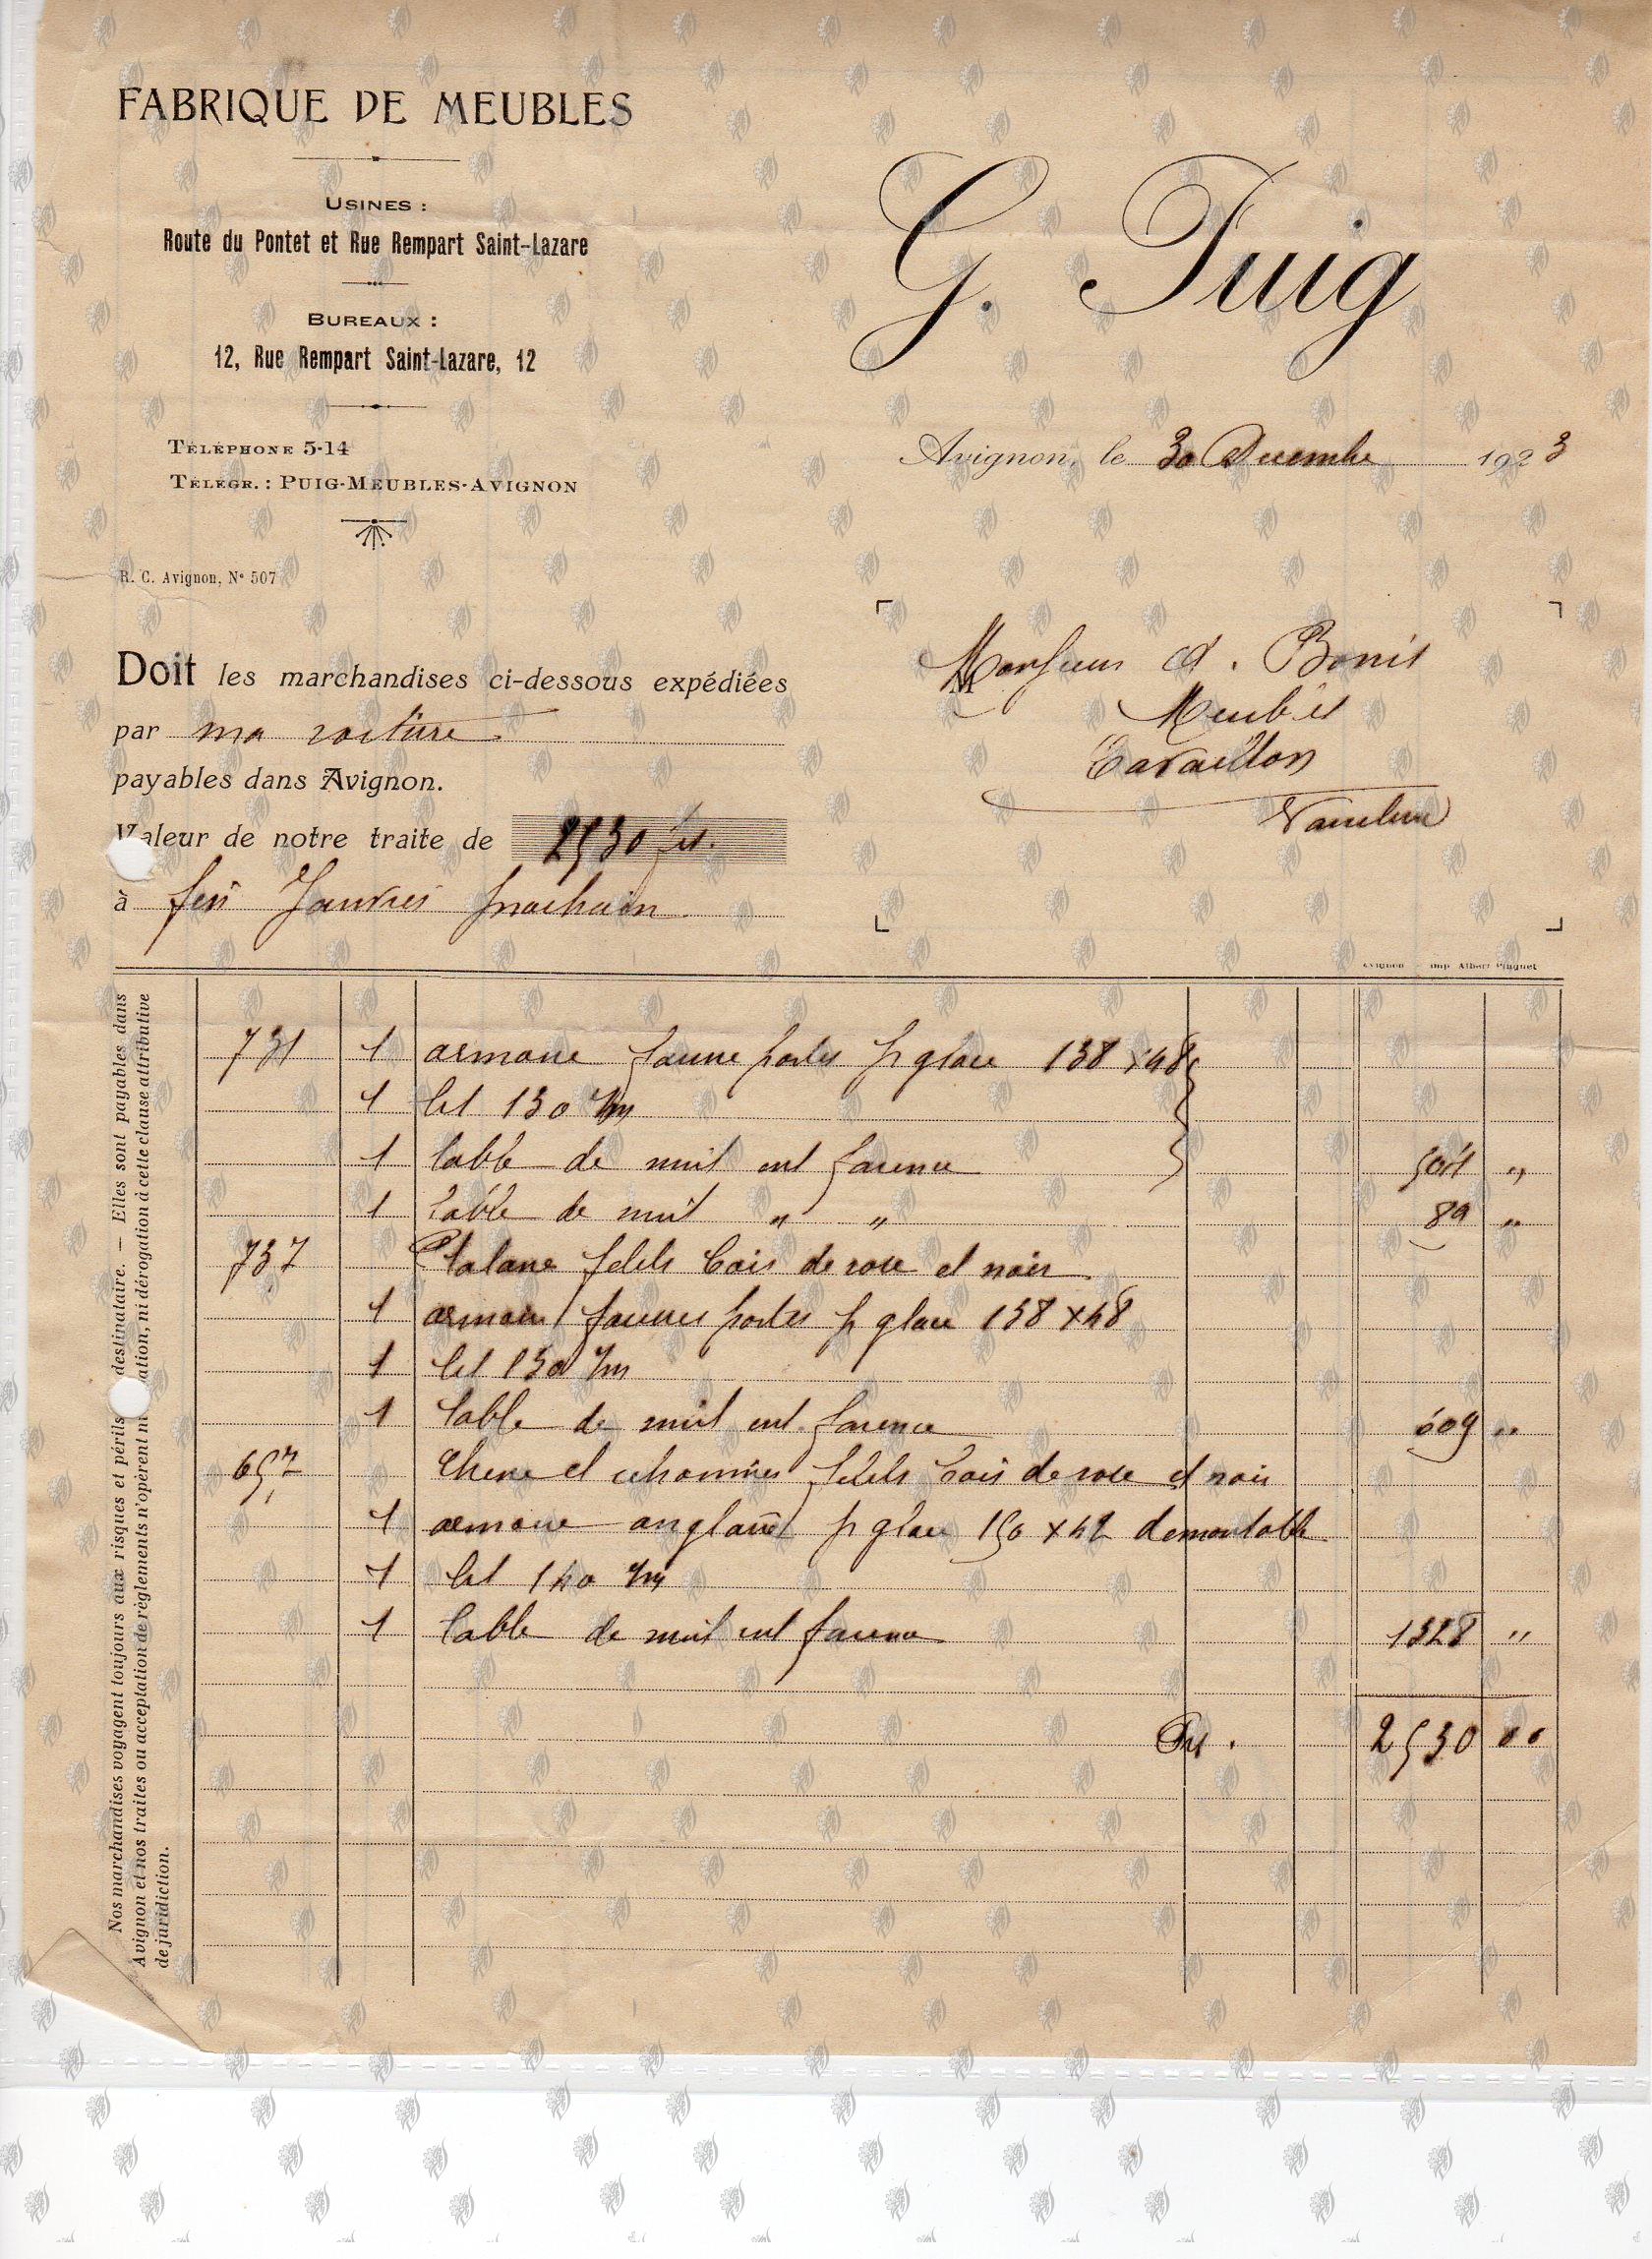 FABRIQUE DE MEUBLES
USINES :
Route du Pontet et Rue Rempart Saint-Lazare
BUREAUX :
12, Rue Rempart Saint-Lazare, 12
TÉLÉPHONE 5-14
TÉLÉGR. : PUIG-MEUBLES-AVIGNON
R. C. Avignon, N° 507
G. Puig
Avignon, le 30 Decembre 1923
Monsieur A. Bonis
Meubles
Cavaillon
Vaucluse
Doit les marchandises ci-dessous expédiées
par ma voiture
payables dans Avignon.
Valeur de notre traite de 2530 frs.
à fin Janvier prochain
Avignon - Imp Albert Pinguet
731 1 armoire fausse portes p glace 138 x 48
1 lit 130 c/m
1 table de nuit int faience 504 "
1 table de nuit " " 89 "
737 Platane filets bois de rose et noir
1 armoire fausses portes p glace 138 x 48
1 lit 130 c/m
1 table de nuit int. faience 609 "
657 Chene et filets bois de rose et noir
1 armoire anglaise p glace 150 x 42 demontable
1 lit 140 c/m
1 table de nuit int faience 1328 "
Frs. 2530 "
Nos marchandises voyagent toujours aux risques et périls destinataire. — Elles sont payables dans
Avignon et nos traites ou acceptation de règlements n'opèrent ni ation, ni dérogation à cette clause attributive
de juridiction.